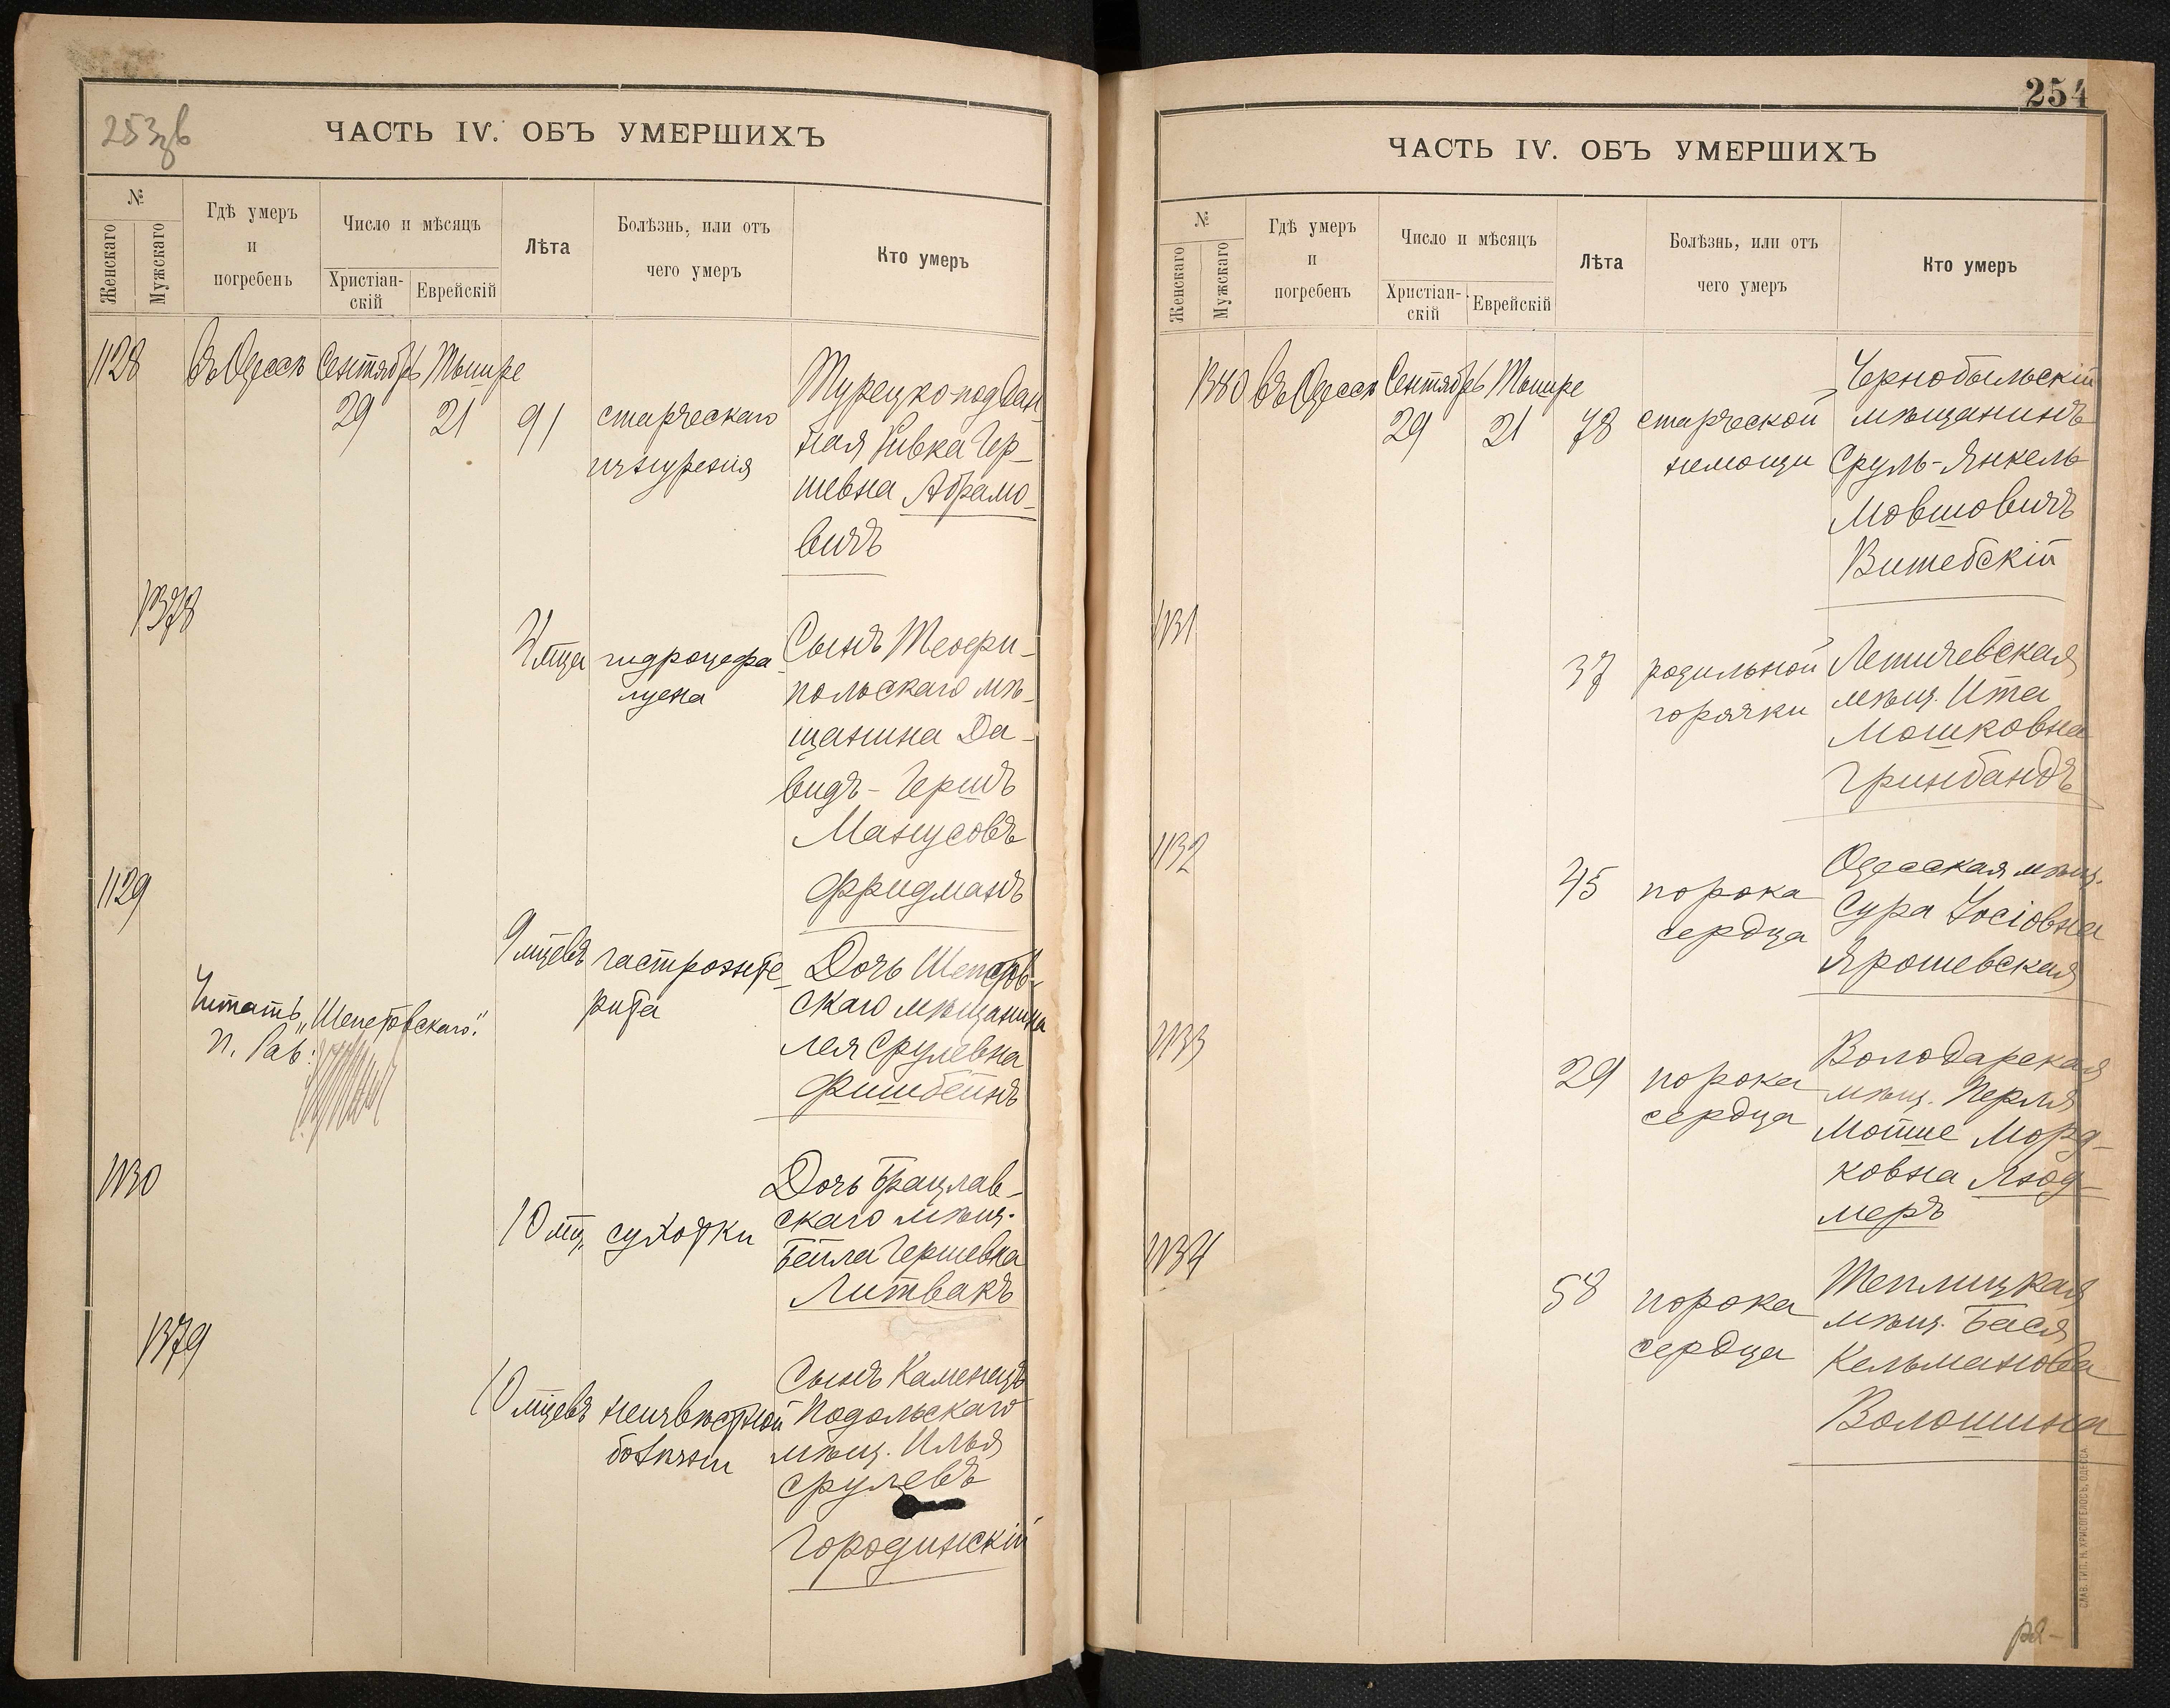 253 зв
ЧАСТЬ IV. ОБЪ УМЕРШИХЪ
№
Женскаго
Мужскаго
Гдѣ умеръ
и
погребенъ
Число и мѣсяцъ
Христіан-
скій
Еврейскій
Лѣта
Болѣзнь, или отъ
чего умеръ
Кто умеръ
1128
въ Одессѣ
Сентябрь
29
Тишре
21
91
старческаго
изнуренія
Турецко-поддан
ная Ривка Гер-
шевна Абрамо-
вичъ
1378
мца
гидроцефа
луена
Сынъ Теофи-
польскаго мѣ-
щанина Да-
видъ-Гершъ
Манусовъ
Фридманъ
1129
9 мцевъ
гастроэнте-
рита
Дочь Шепетов-
скаго мѣщанина
Лея Срулевна
Фишбейнъ
Читать „Шепетовскаго".
П. Рав.
1130
10 мц.
сухотки
Дочь Брацлав-
скаго мѣщ.
Бейла Гершевна
Литвакъ
1379
10 мцевъ
неизвѣстной
болѣзни
Сынъ Каменецъ
Подольскаго
мѣщ. Илья
Срулевъ
Городинскій
254
ЧАСТЬ IV. ОБЪ УМЕРШИХЪ
№
Женскаго
Мужскаго
Гдѣ умеръ
и
погребенъ
Число и мѣсяцъ
Христіан-
скій
Еврейскій
Лѣта
Болѣзнь, или отъ
чего умеръ
Кто умеръ
1380
въ Одессѣ
Сентябрь
29
Тишре
21
78
старческой
немощи
Чернобыльскій
мѣщанинъ
Сруль-Янкель
Мовшовичъ
Витебскій
1131
37
родильной
горячки
Летичевская
мѣщ. Ита
Мошковна
Гринбандъ
1132
45
порока
сердца
Одесская мѣщ.
Сура Іосіовна
Ярошевская
1133
29
порока
сердца
Володарская
мѣщ. Перля
Мотше Морд-
ковна Люд-
меръ
1134
58
порока
сердца
Теплицкая
мѣщ. Бася
Кельманова
Волошина
СЛАВ. ТИП. Н. ХРИСОГЕЛОСЪ, ОДЕССА